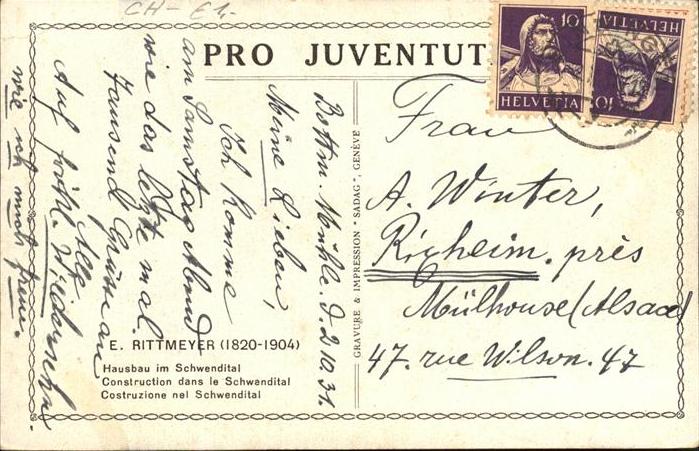 CH-
PRO JUVENTUT
10
HELVETIA
HELVETIA
10
Bottm. Mühle. d. 2.10.31.
Meine Lieben,
Ich komme
am Samstag Abend
wie das letzte mal.
Tausend Grüsse an
Alle
Auf fröhl. Wiedersehn
wie ich mich freue.
GRAVURE & IMPRESSION "SADAG", GENÈVE
Frau
A. Winter,
Rixheim. près
Mülhouse (Alsace)
47. rue Wilson. 47
E. RITTMEYER (1820-1904)
Hausbau im Schwendital
Construction dans le Schwendital
Costruzione nel Schwendital